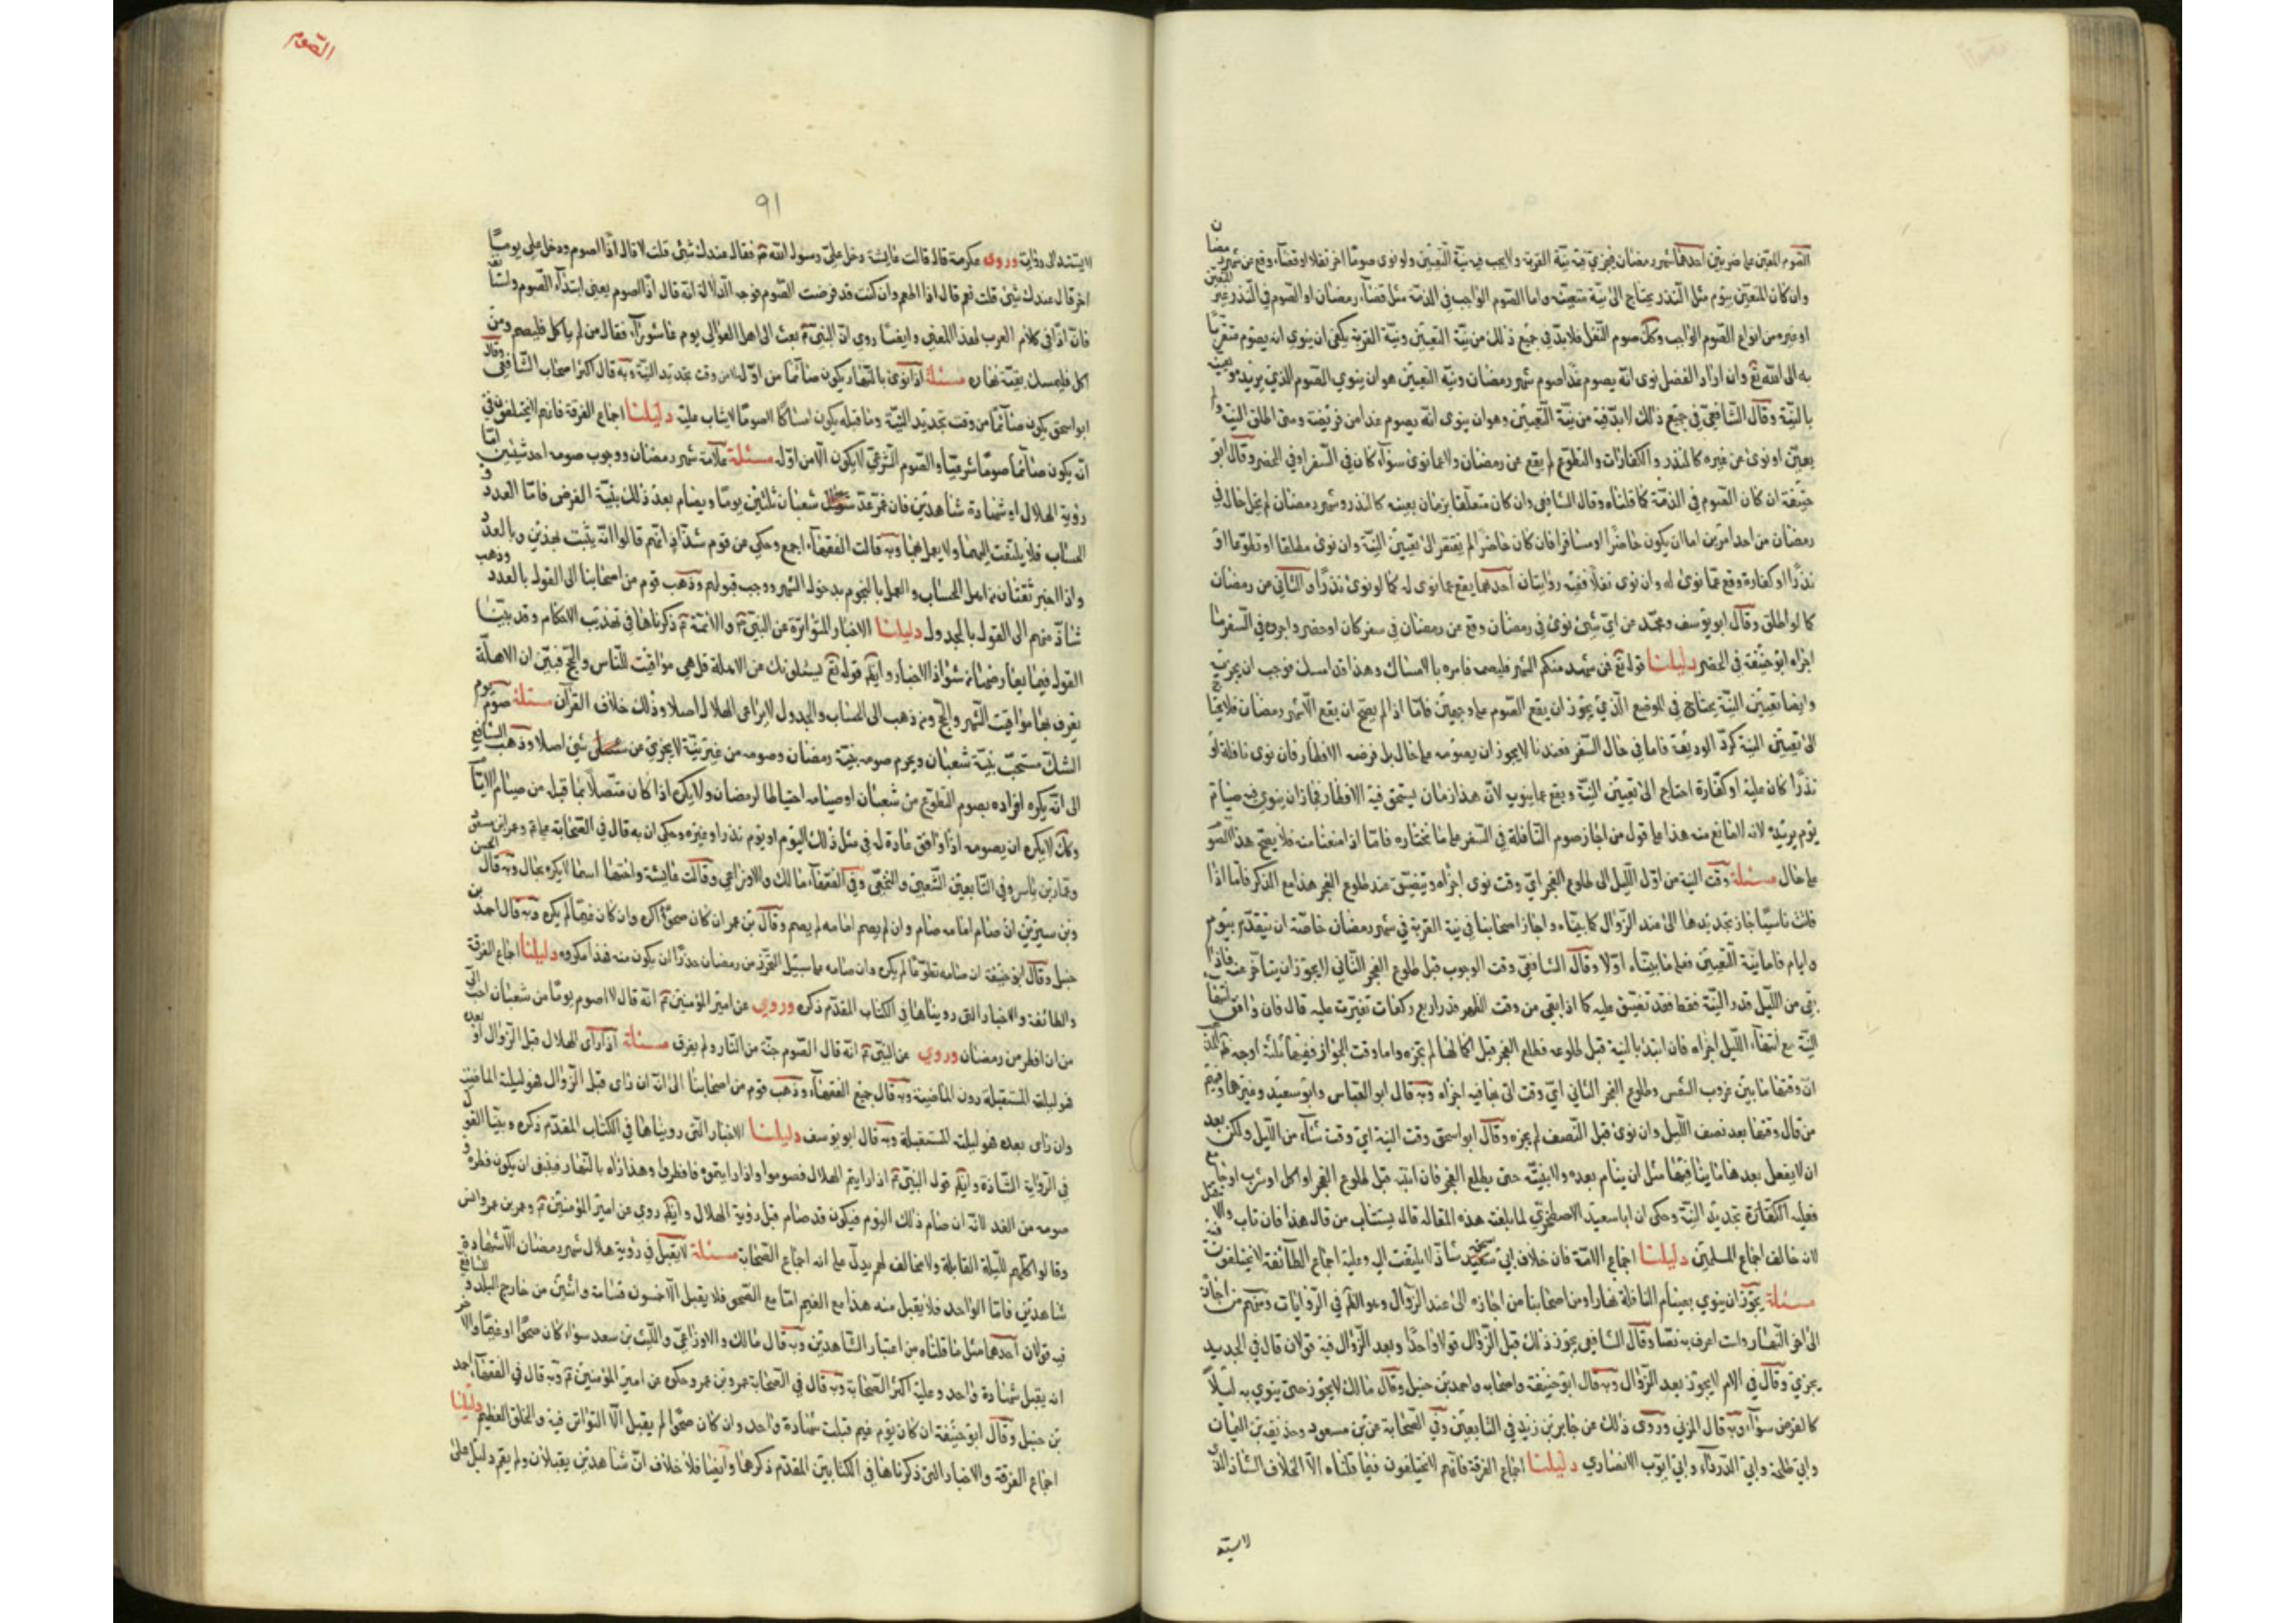 الصوم المعين على ضربين احدهما شهر رمضان يجزي فيه نية القربة ولا يجب فيه نية التعيين ولو نوى صوما اخر نفلا او قضاء وقع من شهر رمضان
وان كان المعين بيوم مثل النذر يحتاج الى نية متعينة واما الصوم الواجب في الذمة مثل قضاء رمضان او الصوم في النذر غير المعين
او غيره من انواع الصوم الواجب وكك صوم النفل فلا بد في جميع ذلك من نية التعيين ونية القربة يكفي ان ينوي انه يصوم متقربا
به الى الله تع وان اراد الفضل نوى انه يصوم غدا صوم شهر رمضان ونية التعيين هو ان ينوي الصوم الذي يريد بعينه
بالنية وقال الشافعي في جميع ذلك لا بد فيه من نية التعيين وهو ان ينوى انه يصوم غدا من فريضة ومتى اطلق النية ولم
يعين او نوى عن غيره كالنذر والكفارات والتطوع لم يقع عن رمضان ولا عما نوى سواء كان في السفر او في الحضر وقال ابو
حنيفة ان كان الصوم في الذمة كما قلناه وقال الشافعي وان كان متعلقا بزمان بعينه كالنذر وشهر رمضان لم يخل حاله في
رمضان من احد امرين اما ان يكون حاضرا او مسافرا فان كان حاضرا لم يفتقر الى تعيين النية وان نوى مطلقا او تطوعا او
نذرا او كفارة وقع عما نوى له وان نوى نفلا ففيه روايتان احدهما يقع عما نوى له كما لو نوى نذرا والثاني من رمضان
كما لو اطلق وقال ابو يوسف ومحمد من اي شئ نوى في رمضان وقع من رمضان في سفر كان او حضر واجره في السفر ما
اجزاه ابو حنيفة في الحضر دليلنا قوله تع فمن شهد منكم الشهر فليصمه فامره بالامساك وهذا قد امسك فوجب ان يجزيه
وايضا تعيين النية يحتاج في الموضع الذي يجوز ان يقع الصوم على وجهين فاما اذا لم يصح ان يقع الا شهر رمضان فلا يحتاج
الى تعيين النية كرد الوديعة فاما في حال السفر فعندنا لا يجوز ان يصومه على حال بل فرضه الافطار فان نوى نافلة او
نذرا كان عليه او كفارة احتاج الى تعيين النية ويقع عما ينويه لان هذا زمان يستحق فيه الافطار فجاز ان ينوى فيه صيام
يوم يريده لانه لا مانع منه هذا على قول من اجاز صوم النافلة في السفر على ما نختاره فاما اذا منعنا منه فلا يصح هذا الصوم
على حال مسئلة وقت النية من اول الليل الى طلوع الفجر اي وقت نوى اجزاه ويتضيق عند طلوع الفجر هذا مع الذكر فاما اذا
فاتت ناسيا جاز تجديدها الى عند الزوال كما بيناه واجاز اصحابنا في نية القربة في شهر رمضان خاصة ان تتقدم بيوم
وايام فاما نية التعيين فعلى ما بيناه اولا وقال الشافعي وقت الوجوب قبل طلوع الفجر الثاني لا يجوز ان يتاخر عنه فاذا
بقي من الليل قدر النية فقط فقد تضيق عليه كما اذا بقي من وقت الظهر قدر اربع ركعات تضيقت عليه قال فان وافق انتهاء
النية مع انتهاء الليل اجزاه فان ابتدء بالنية قبل طلوعه فطلع الفجر قبل اكمالها لم يجزه واما وقت الجواز ففيه ثلثة اوجه
ان وقتها ما بين غروب الشمس وطلوع الفجر الثاني اي وقت اتى بها فيه اجزاه وبه قال ابو العباس وابو سعيد وغيرهما وفيهم
من قال وقتها بعد نصف الليل وان نوى قبل النصف لم يجزه وقال ابو اسحق وقت النية اي وقت شاء من الليل ولكن بعد
ان لا يفعل بعدها ما ينافيها مثل ان ينام بعده ولا ينتبه حتى يطلع الفجر فان انتبه قبل طلوع الفجر او اكل او شرب او جامع
فعليه الكفارة تجديد النية وحكى ان ابا سعيد الاصطخري لما بلغته هذه المقالة قال يستتاب من قال هذا فان تاب والا قتل
لانه خالف اجماع المسلمين دليلنا اجماع الامة فان خلاف ابي سعيد شاذ لا يلتفت اليه وعليه اجماع الطائفة لا يختلفون فيه
مسئلة يجوز ان ينوي بصيام النافلة نهارا ومن اصحابنا من اجازه الى عند الزوال وهو الاظهر في الروايات ومنهم من اجازه
الى اخر النهار ولست اعرف به نصا وقال الشافعي يجوز ذلك قبل الزوال قولا واحدا وبعد الزوال فيه قولان قال في الجديد
يجزي وقال في الام لا يجوز بعد الزوال وبه قال ابو حنيفة واصحابه واحمد بن حنبل وقال مالك لا يجوز حتى ينوي به ليلا
كالفرض سواء وبه قال المزني وروى ذلك عن جابر بن زيد في التابعين وفي الصحابة عن بن مسعود وحذيفة بن اليمان
وابي طلحة وابي الدرداء وابي ايوب الانصاري دليلنا اجماع الفرقة فانهم لا يختلفون فيما قلناه الا الخلاف الشاذ الذي
لا يستند
الصوم
٩١
لا يستند الى رواية وروى عكرمة قال قالت عايشة دخل علي رسول الله فقال عندك شئ قلت لا قال اذا الصوم ودخل علي يوما
اخر قال عندك شئ قلت نعم قال اذا اطعم وان كنت قد فرضت الصوم فوجه الدلالة انه قال اذا الصوم يعني ابتداء الصوم ولنا
فان اذا في كلام العرب لهذا المعنى وايضا روي ان النبي بعث الى اهل العوالي يوم عاشوراء فقال من لم ياكل فليصم ومن
اكل فليمسك بقية نهاره مسئلة اذا نوى بالنهار يكون صائما من اوله لا من وقت تجديد النية وبه قال اكثر اصحاب الشافعي وقال
ابو اسحق يكون صائما من وقت تجديد النية وما قبله يكون امساكا لا صوما لا يثاب عليه دليلنا اجماع الفرقة فانهم لا يختلفون في
انه يكون صائما صوما شرعيا والصوم الشرعي لا يكون الا من اوله مسئلة علامة شهر رمضان ووجوب صومه احد شيئين اما
رؤية الهلال او شهادة شاهدين فان غم عد شعبان ثلثين يوما ويصام بعد ذلك بنية الفرض فاما العدد و
الحساب فلا يلتفت اليهما ولا يعمل بهما وبه قالت الفقهاء اجمع وحكي عن قوم شذاذ انهم قالوا انه يثبت بهذين وبالعدد
واذا اخبر ثقتان من اهل الحساب والعمل بالنجوم بدخول الشهر وجب قبولهم وذهب قوم من اصحابنا الى القول بالعدد وذهب
شاذ منهم الى القول بالجدول دليلنا الاخبار المتواترة عن النبي والائمة ذكرناها في تهذيب الاحكام وقد بينا
القول فيما يعارضها من شواذ الاخبار وايضا قوله تع يسئلونك عن الاهلة قل هي مواقيت للناس والحج فبين ان الاهلة
يعرف بها مواقيت الشهر والحج ومن ذهب الى الحساب والجدول لا يراعى الهلال اصلا وذلك خلاف القرآن مسئلة صوم يوم
الشك مستحب بنية شعبان ويحرم صومه بنية رمضان وصومه من غير نية لا يجزئ عن شئ اصلا وذهب الشافعي
الى انه يكره افراده بصوم التطوع من شعبان او صيامه احتياطا لرمضان ولا يكره اذا كان متصلا بما قبله من صيام الايام
وكك لا يكره ان يصومه اذا وافق عادة له في مثل ذلك اليوم او يوم نذر او غيره وحكى ان به قال في الصحابة علي وعمر
وعمار بن ياسر وفي التابعين الشعبي والنخعي وفي الفقهاء مالك والاوزاعي وقالت عايشة واختها اسماء لا يكره بحال وبه قال الحسن
وبن سيرين ان صام امامه صام وان لم يصم امامه لم يصم وقال بن عمر ان كان صحوا كره وان كان غيما لم يكره وبه قال احمد بن
حنبل وقال ابو حنيفة ان صامه تطوعا لم يكره وان صامه على سبيل التحرز من رمضان حذرا ان يكون منه فهذا مكروه دليلنا اجماع الفرقة
والطائفة والاخبار التي رويناها في الكتاب المقدم ذكره وروي عن امير المؤمنين انه قال لا اصوم يوما من شعبان احب الي
من ان افطر من رمضان وروي عن النبي انه قال الصوم جنة من النار ولم يفرق مسئلة اذا راى الهلال قبل الزوال او بعده
فهو لليلة المستقبلة دون الماضية وبه قال جميع الفقهاء وذهب قوم من اصحابنا الى انه ان راى قبل الزوال فهو لليلة الماضية
وان راى بعده فهو لليلة المستقبلة وبه قال ابو يوسف دليلنا الاخبار التي رويناها في الكتاب المقدم ذكره وبينا القول
في الرواية الشاذة وايضا قول النبي اذا رايتم الهلال فصوموا واذا رايتموه فافطروا وهذا رآه بالنهار فينبغي ان يكون فطره و
صومه من الغد لانه ان صام ذلك اليوم فيكون قد صام قبل رؤية الهلال وايضا روي عن امير المؤمنين وعمر بن عمر وانس
وقالوا كلهم لليلة القابلة ولا مخالف لهم يدل على انه اجماع الصحابة مسئلة لا يقبل في رؤية هلال شهر رمضان الا شهادة
شاهدين فاما الواحد فلا يقبل منه هذا مع الغيم اما مع الصحو فلا يقبل الا خمسون قسامة واثنين من خارج البلد وللشافعي
فيه قولان احدهما مثل ما قلناه من اعتبار الشاهدين وبه قال مالك والاوزاعي والليث بن سعد سواء كان صحوا او غيما والاخر
انه يقبل شهادة واحد وعليه اكثر اصحابه وبه قال في الصحابة عمر وبن عمر وحكوه عن امير المؤمنين وبه قال في الفقهاء احمد
بن حنبل وقال ابو حنيفة ان كان يوم غيم قبلت شهادة واحد وان كان صحوا لم يقبل الا التواتر فيه والخلق العظيم دليلنا
اجماع الفرقة والاخبار التي ذكرناها في الكتابين المقدم ذكرهما وايضا فلا خلاف ان شاهدين يقبلان ولم يقم دليل على